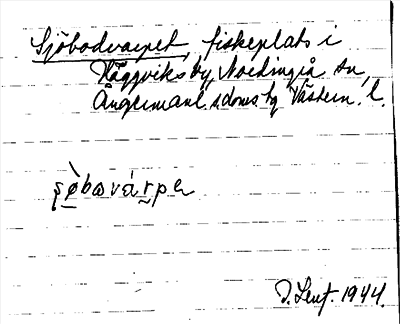 Sjöbodvarpet, fiskeplats i
Häggviks by, Nordingrå sn,
Ångermanl. s doms hg Västern. l.
ʂø̀bωvárpe
D. Lent. 1944.